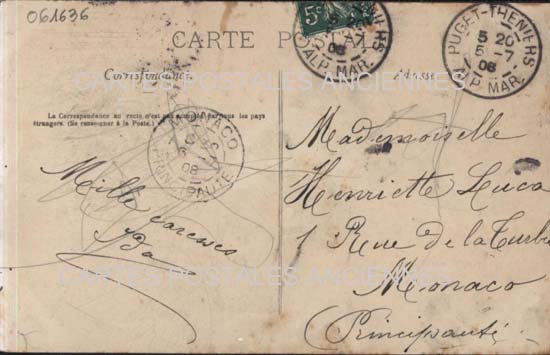 061636
CARTE POSTALE
Correspondance
Adresse
La Correspondance au recto n'est pas acceptée par tous les pays
étrangers. (Se renseigner à la Poste.)
5c
5
6 -7
08
ALP. MAR.
PUGET-THENIERS
5 20
6 -7
08
ALP. MAR.
MONACO
08
PRINCIPAUTE
Mille caresses
Mademoiselle
Henriette Luca
1 Rue de la Turbie
Monaco
Principauté
CARTES POSTALES ANCIENNES
CARTES POSTALES ANCIENNES